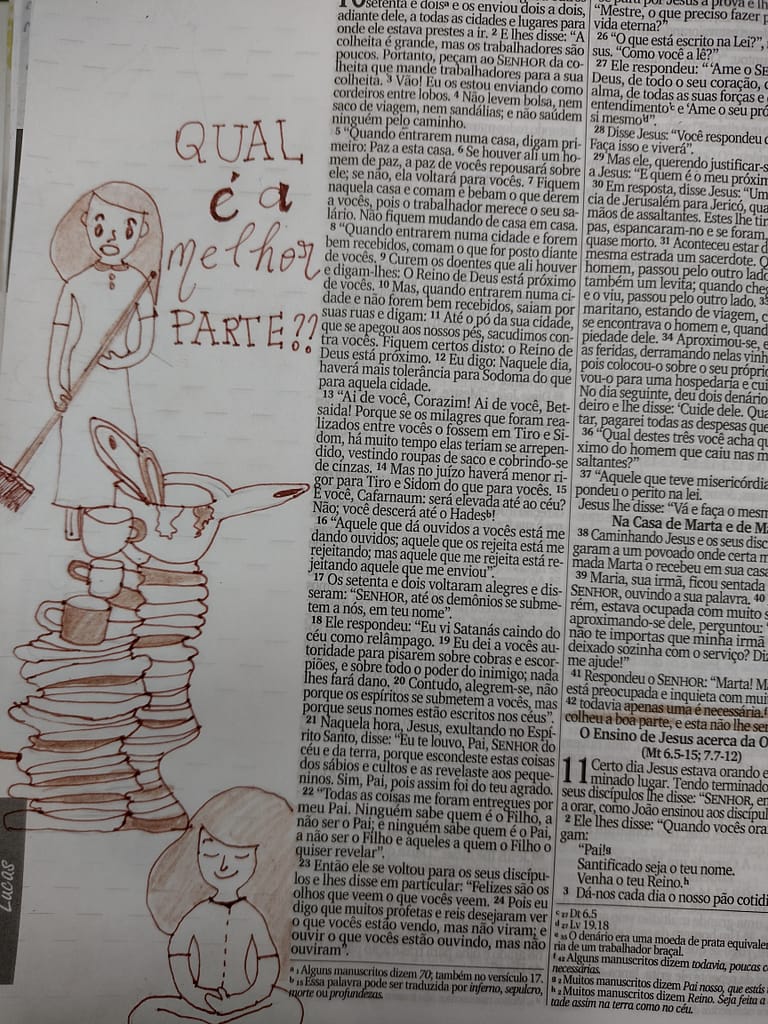 QUAL
é a
melhor
PARTE??
Lucas
10 setenta e dois ᵃ e os enviou dois a dois,
adiante dele, a todas as cidades e lugares para
onde ele estava prestes a ir. 2 E lhes disse: “A
colheita é grande, mas os trabalhadores são
poucos. Portanto, peçam ao SENHOR da co-
lheita que mande trabalhadores para a sua
colheita. 3 Vão! Eu os estou enviando como
cordeiros entre lobos. 4 Não levem bolsa, nem
saco de viagem, nem sandálias; e não saúdem
ninguém pelo caminho.
5 “Quando entrarem numa casa, digam pri-
meiro: Paz a esta casa. 6 Se houver ali um ho-
mem de paz, a paz de vocês repousará sobre
ele; se não, ela voltará para vocês. 7 Fiquem
naquela casa e comam e bebam o que derem
a vocês, pois o trabalhador merece o seu sa-
lário. Não fiquem mudando de casa em casa.
8 “Quando entrarem numa cidade e forem
bem recebidos, comam o que for posto diante
de vocês. 9 Curem os doentes que ali houver
e digam-lhes: O Reino de Deus está próximo
de vocês. 10 Mas, quando entrarem numa ci-
dade e não forem bem recebidos, saiam por
suas ruas e digam: 11 Até o pó da sua cidade,
que se apegou aos nossos pés, sacudimos con-
tra vocês. Fiquem certos disto: o Reino de
Deus está próximo. 12 Eu digo: Naquele dia,
haverá mais tolerância para Sodoma do que
para aquela cidade.
13 “Ai de você, Corazim! Ai de você, Bet-
saida! Porque se os milagres que foram rea-
lizados entre vocês o fossem em Tiro e Si-
dom, há muito tempo elas teriam se arrepen-
dido, vestindo roupas de saco e cobrindo-se
de cinzas. 14 Mas no juízo haverá menor ri-
gor para Tiro e Sidom do que para vocês. 15
E você, Cafarnaum: será elevada até ao céu?
Não; você descerá até o Hadesᵇ!
16 “Aquele que dá ouvidos a vocês está me
dando ouvidos; aquele que os rejeita está me
rejeitando; mas aquele que me rejeita está re-
jeitando aquele que me enviou”.
17 Os setenta e dois voltaram alegres e dis-
seram: “SENHOR, até os demônios se subme-
tem a nós, em teu nome”.
18 Ele respondeu: “Eu vi Satanás caindo do
céu como relâmpago. 19 Eu dei a vocês au-
toridade para pisarem sobre cobras e escor-
piões, e sobre todo o poder do inimigo; nada
lhes fará dano. 20 Contudo, alegrem-se, não
porque os espíritos se submetem a vocês, mas
porque seus nomes estão escritos nos céus”.
21 Naquela hora, Jesus, exultando no Espí-
rito Santo, disse: “Eu te louvo, Pai, SENHOR do
céu e da terra, porque escondeste estas coisas
dos sábios e cultos e as revelaste aos peque-
ninos. Sim, Pai, pois assim foi do teu agrado.
22 “Todas as coisas me foram entregues por
meu Pai. Ninguém sabe quem é o Filho, a
não ser o Pai; e ninguém sabe quem é o Pai,
a não ser o Filho e aqueles a quem o Filho o
quiser revelar”.
23 Então ele se voltou para os seus discípu-
los e lhes disse em particular: “Felizes são os
olhos que veem o que vocês veem. 24 Pois eu
digo que muitos profetas e reis desejaram ver
o que vocês estão vendo, mas não viram; e
ouvir o que vocês estão ouvindo, mas não
ouviram”.
a 1 Alguns manuscritos dizem 70; também no versículo 17.
b 15 Essa palavra pode ser traduzida por inferno, sepulcro,
morte ou profundezas.
“Mestre, o que preciso fazer p
vida eterna?”
26 “O que está escrito na Lei?”,
sus. “Como você a lê?”
27 Ele respondeu: “‘Ame o SE
Deus, de todo o seu coração,
alma, de todas as suas forças e
entendimentoᶜ e ‘Ame o seu pró
si mesmoᵈ”.
28 Disse Jesus: “Você respondeu
Faça isso e viverá”.
29 Mas ele, querendo justificar-s
a Jesus: “E quem é o meu próxim
30 Em resposta, disse Jesus: “Um
cia de Jerusalém para Jericó, qua
mãos de assaltantes. Estes lhe tir
pas, espancaram-no e se foram,
quase morto. 31 Aconteceu estar d
mesma estrada um sacerdote. Q
homem, passou pelo outro lado
também um levita; quando che
e o viu, passou pelo outro lado.
maritano, estando de viagem, c
se encontrava o homem e, quand
piedade dele. 34 Aproximou-se, e
as feridas, derramando nelas vinh
pois colocou-o sobre o seu própri
vou-o para uma hospedaria e cui
No dia seguinte, deu dois denário
deiro e lhe disse: ‘Cuide dele. Qua
tar, pagarei todas as despesas que
36 “Qual destes três você acha q
ximo do homem que caiu nas m
saltantes?”
37 “Aquele que teve misericórdia
pondeu o perito na lei.
Jesus lhe disse: “Vá e faça o mesm
Na Casa de Marta e de M
38 Caminhando Jesus e os seus disc
garam a um povoado onde certa m
mada Marta o recebeu em sua casa
39 Maria, sua irmã, ficou sentada
SENHOR, ouvindo a sua palavra. 40
rém, estava ocupada com muito s
aproximando-se dele, perguntou:
não te importas que minha irmã
deixado sozinha com o serviço? Diz
me ajude!”
41 Respondeu o SENHOR: “Marta! M
está preocupada e inquieta com mui
42 todavia apenas uma é necessária.ᶠ
colheu a boa parte, e esta não lhe ser
O Ensino de Jesus acerca da O
(Mt 6.5-15; 7.7-12)
11 Certo dia Jesus estava orando e
minado lugar. Tendo terminado
seus discípulos lhe disse: “SENHOR, en
a orar, como João ensinou aos discípul
2 Ele lhes disse: “Quando vocês ora
gam:
“Pai!ᵍ
Santificado seja o teu nome.
Venha o teu Reino.ʰ
3 Dá-nos cada dia o nosso pão cotidi
c 27 Dt 6.5
d 27 Lv 19.18
e 35 O denário era uma moeda de prata equivale
ria de um trabalhador braçal.
f 42 Alguns manuscritos dizem todavia, poucas c
necessárias.
g 2 Muitos manuscritos dizem Pai nosso, que estás
h 2 Muitos manuscritos dizem Reino. Seja feita a
tade assim na terra como no céu.